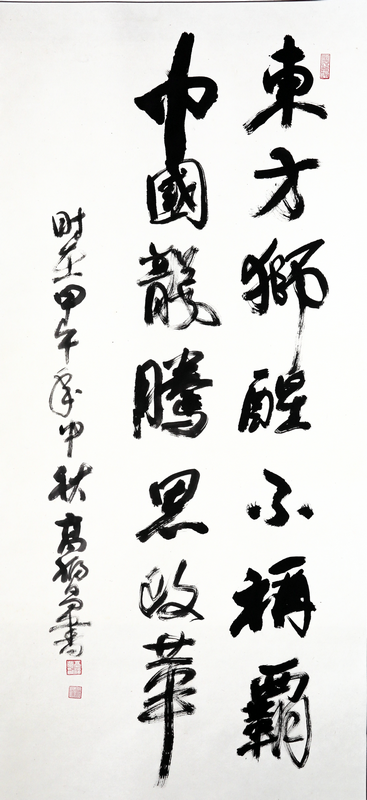 東方獅醒不稱霸
中國龍騰思改革
時在甲午年中秋高獅
書